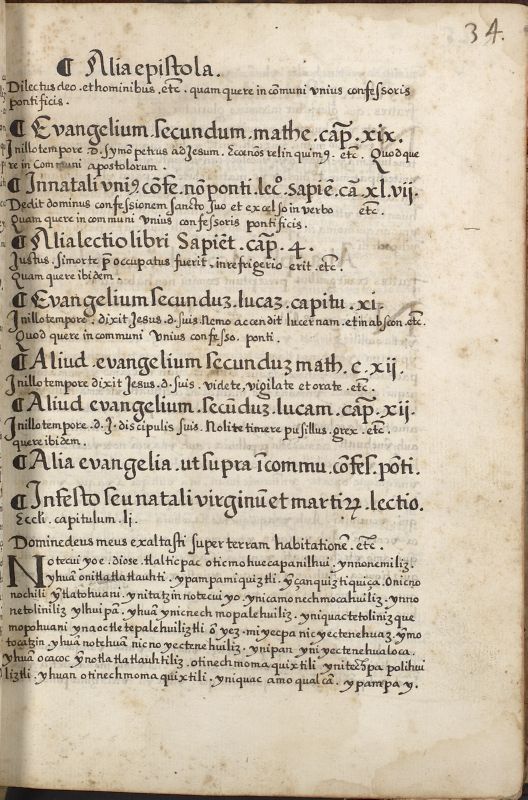 34.
¶ Alia epistola.
Dilectus deo. et hominibus. etc. quam quere in cōmuni vnius confessoris
pontificis.
¶ Evangelium. secundum. mathe. cap̄. xix.
In illo tempore. D. symō petrus ad Jesum. Ecce nōs relinquimꝰ. etc. Quod que
re in Communi apostolorum.
¶ In natali vniꝰ cōfe. nō ponti. lecº. sapiē. cā. xl. vij.
Dedit dominus confessionem sancto suo et excelso in verbo etc.
Quam quere in communi vnius confessoris pontificis.
¶ Alia lectio libri Sapiēt. cap̄. 4.
Justus. si morte p̄occupatus fuerit. in refrigerio erit. etc.
Quam quere ibidem.
¶ Evangelium secunduz. lucaz. capitu. xi.
In illo tempore. dixit Jesus. d. suis. Nemo accendit lucernam. et in abscon. etc.
Quod quere in communi vnius confesso. ponti.
¶ Aliud. evangelium secunduz math. c. xij.
In illo tempore dixit Jesus. d. suis. videte, vigilate et orate. etc.
¶ Aliud evangelium. secūduz. lucam. cap̄. xij.
In illo tempore. d. J. discipulis suis. Nolite timere pusillus. grex. etc.
quere ibidem.
¶ Alia evangelia. ut supra ī commu. cōfes. pōti.
¶ In festo seu natali virginū et martiꝝ. lectio.
Eccli. capitulum. lj.
Domine deus meus exaltasti super terram habitationē. etc.
Notecuiyoe. diose. tlalticpac oticmohuecapanilhui. ynnonemiliz.
yhuā onitlatlatlatlauhti. ypampa miquiztli. yçanquiztiquiça. Onicno
nochili ytlatohuani. ynitatzin notecuiyo. ynicamo nechmocahuiliz. ynno
netoliniliz ylhuipā. yhuā ynicnech mopalehuiliz. yniquac tetoliniz que
mopohuani ynaoctle tepalehuiliztli ā yez. miyecpa nicyectenehuaz. ymo
tocatzin. yhuā notehuā nicnoyectenehuiliz. ynipan yniyectenehualoca.
yhuā ocacoc ynotlatlatlauhtiliz. otinechmomaquixtili ynitechpa polihui
liztli. yhuan otinechmomaquixtili. yniquac amo qualcā. ypampa y.